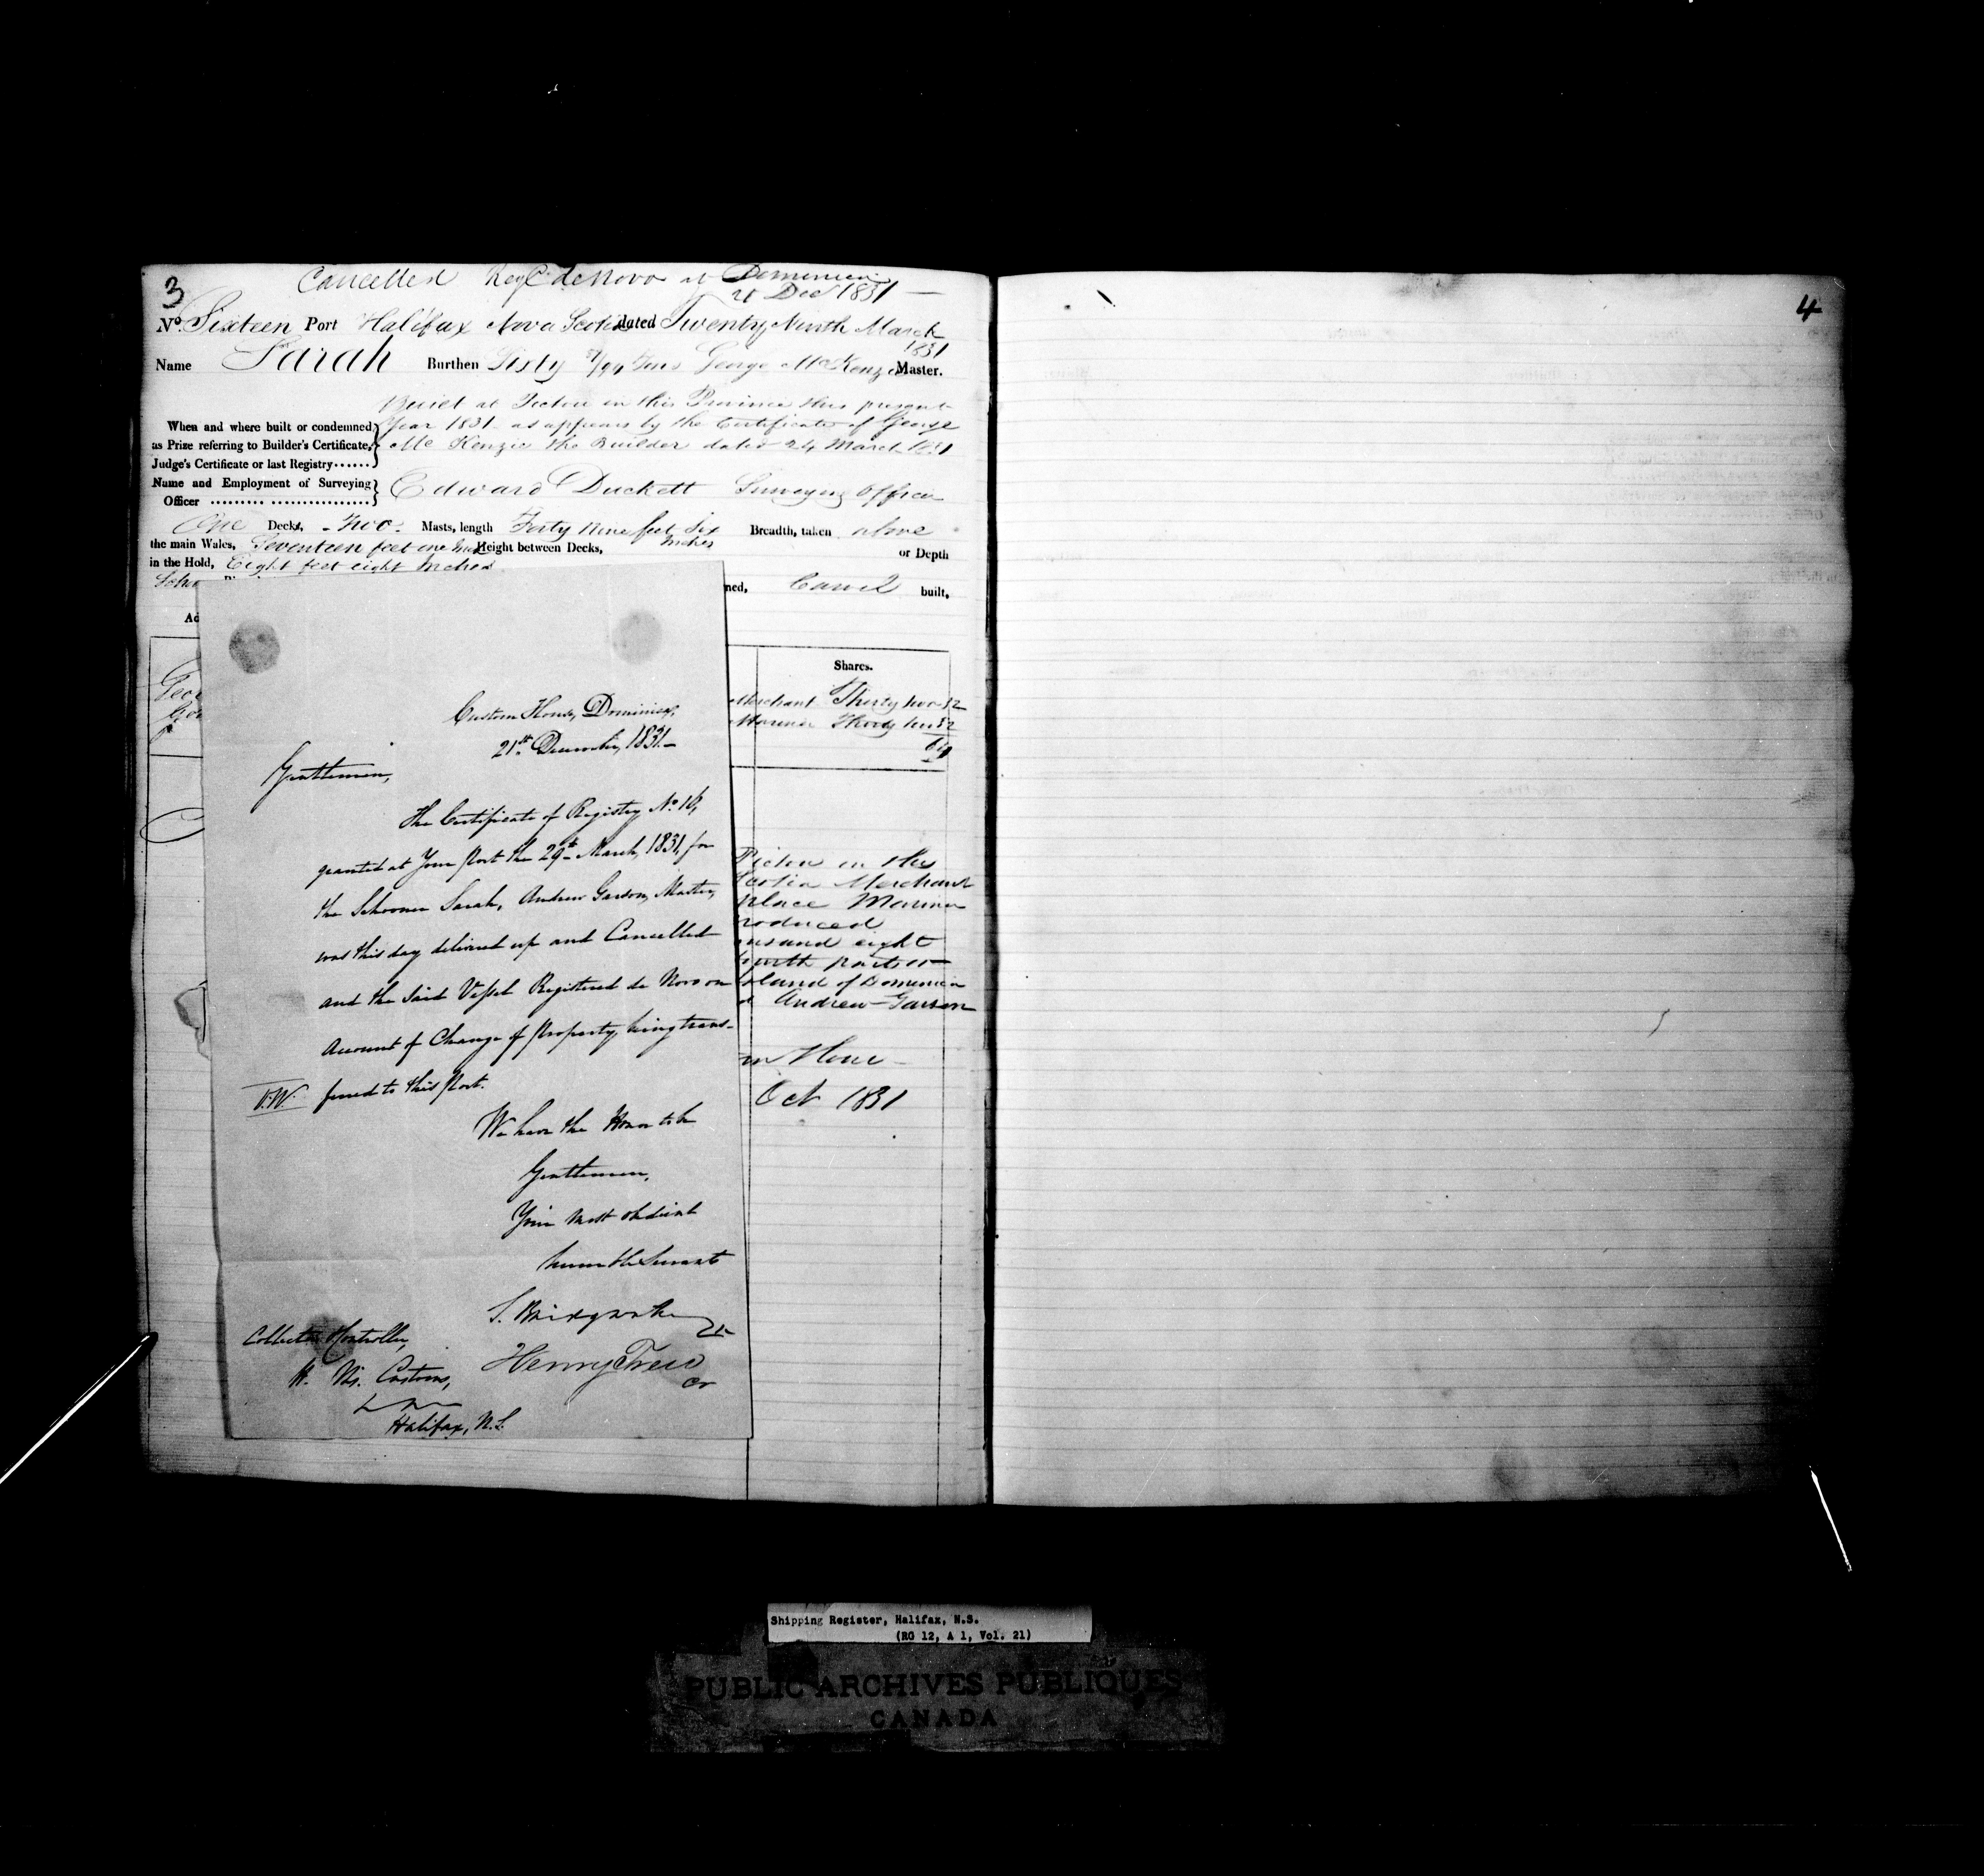 3
Cancelled Reg^d de Novo at Dominica
21 Dec^r 1831 —
N^o. Sixteen Port Halifax Nova Scotia dated Twenty Ninth March
1831
Name Sarah Burthen Sixty 57/94 Tons George McKenzie Master.
Built at Pictou in this Province this present
When and where built or condemned Year 1831 as appears by the Certificate of George
as Prize referring to Builder's Certificate, Mc Kenzie the Builder dated 24 March 1831
Judge's Certificate or last Registry......
Name and Employment of Surveying
Officer Edward Duckett Surveying Officer
One Decks, - Two - Masts, length Forty Nine feet Six Inches Breadth, taken above
the main Wales, Seventeen feet one Inch Height between Decks, or Depth
in the Hold, Eight feet eight Inches
Schr
ned, Carvel built,
Ad
Shares.
Geor
Merchant Thirty two 32
Mariner Thirty two 32
64
Custom House, Dominica,
21st December, 1831.—
Gentlemen,
The Certificate of Registry N^o 16,
granted at Your Port the 29th March, 1831, for
the Schooner Sarah, Andrew Garson, Master,
was this day delivered up and Cancelled
and the said Vessel Registered de Novo on
Account of Change of Property, being trans-
ferred to this Port.
We have the Honor to be
Gentlemen,
Your most obedient
humble Servants
Henry Trew
Cr
Collector & Controller,
H. Ms. Customs,
Halifax, N.S.
Pictou in the
Scotia Merchant
place Mariner
roduced
ousand eight
fourth parts
Island of Dominica
Andrew Garson
m House
Oct 1831
4
Shipping Register, Halifax, N.S.
(RG 12, A 1, Vol. 21)
PUBLIC ARCHIVES PUBLIQUES
CANADA